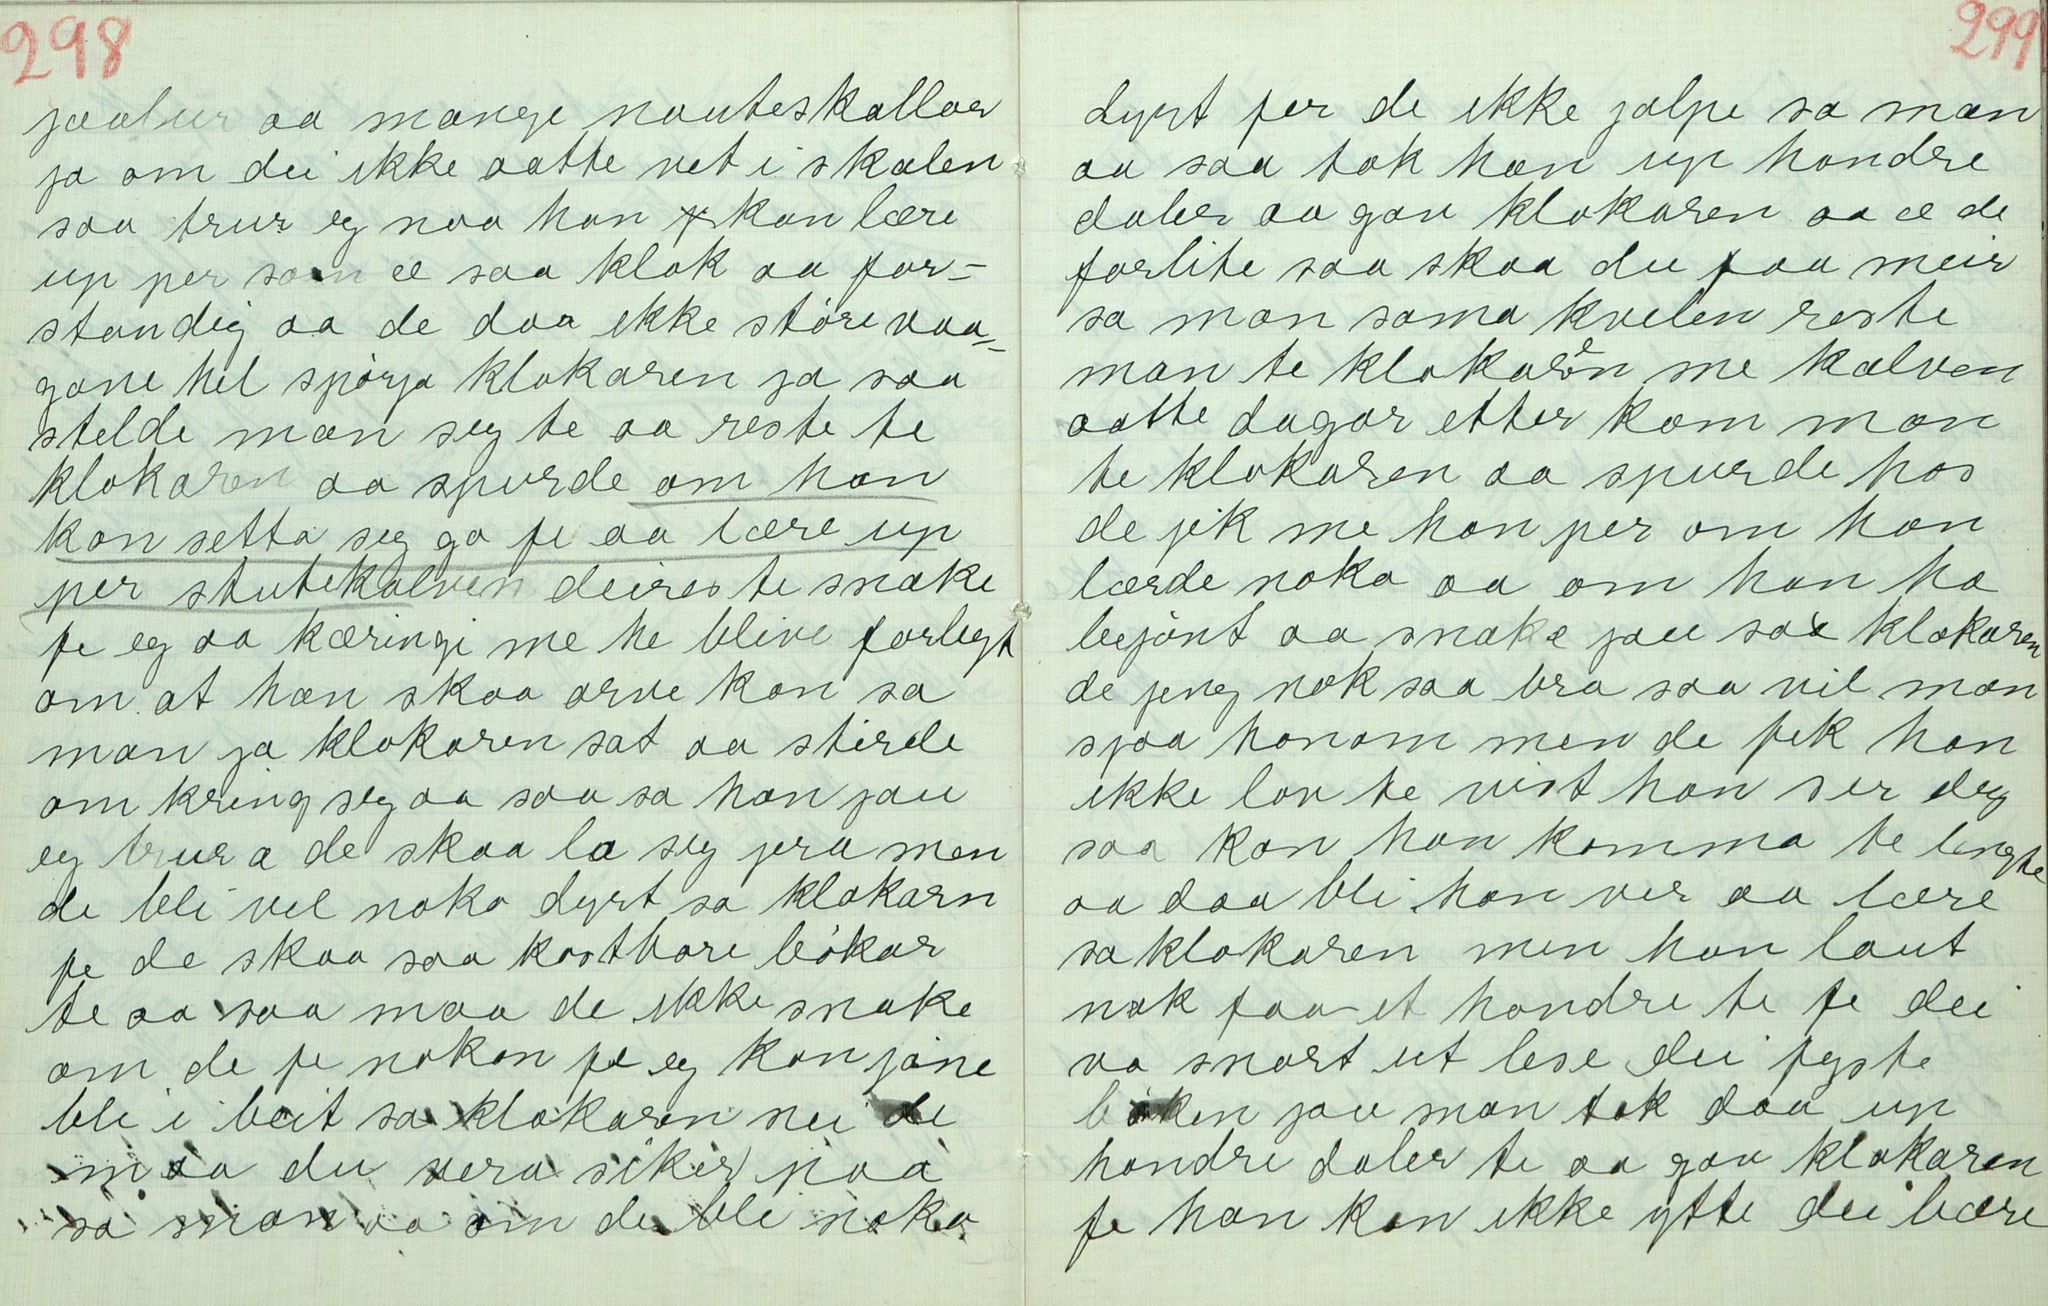 298
jaabur aa mange nauteskallar
ja om dei ikke aatte vet i skalen
saa trur eg naa han kan lære
up per som ee saa klok aa for-
standig aa de daa ikke støre vaa=
gane hel spørja klokaren ja saa
stelde man seg te aa reste te
klokaren aa spurde om han
kan setta seg go fe aa lære up
per stutekalven deires te snake
fe eg aa kæringi me he blive forlegt
om at han skaa arve kon sa
man ja klokaren sat aa stirde
om kring seg aa saa sa han jau
eg trur a de skaa la seg jera men
de bli vel noko dyrt sa klokarn
fe de skaa saa kostbare bøkar
te aa saa maa de ikke snake
om de fe nokon fe eg kan jøne
bli i beit sa klokaren nei de
maa du vera siker paa
sa man aa om de bli noko
299
dyrt fer de ikke jalpe sa man
aa saa tok han up hondre
daler aa gav klokaren aa ee de
forlite saa skaa du faa meir
sa man sama kvelen reste
man te klokaren me kalven
aatte dagar etter kom man
te klokaren aa spurde hos
de jik me han per om han
lærde noko aa om han ha
bejønt aa snake jau sa klokaren
de jeng nok saa bra saa vil man
sjaa honom men de fik han
ikke lov te vist han ser deg
saa kan han komma te lengte
aa daa bli han ver aa lære
sa klokaren men han laut
nok faa et hondre te fe dei
va snart ut lese dei fyste
bøken jau man tok daa up
hondre daler te aa gav klokaren
fe han kan ikke ytte dei bære